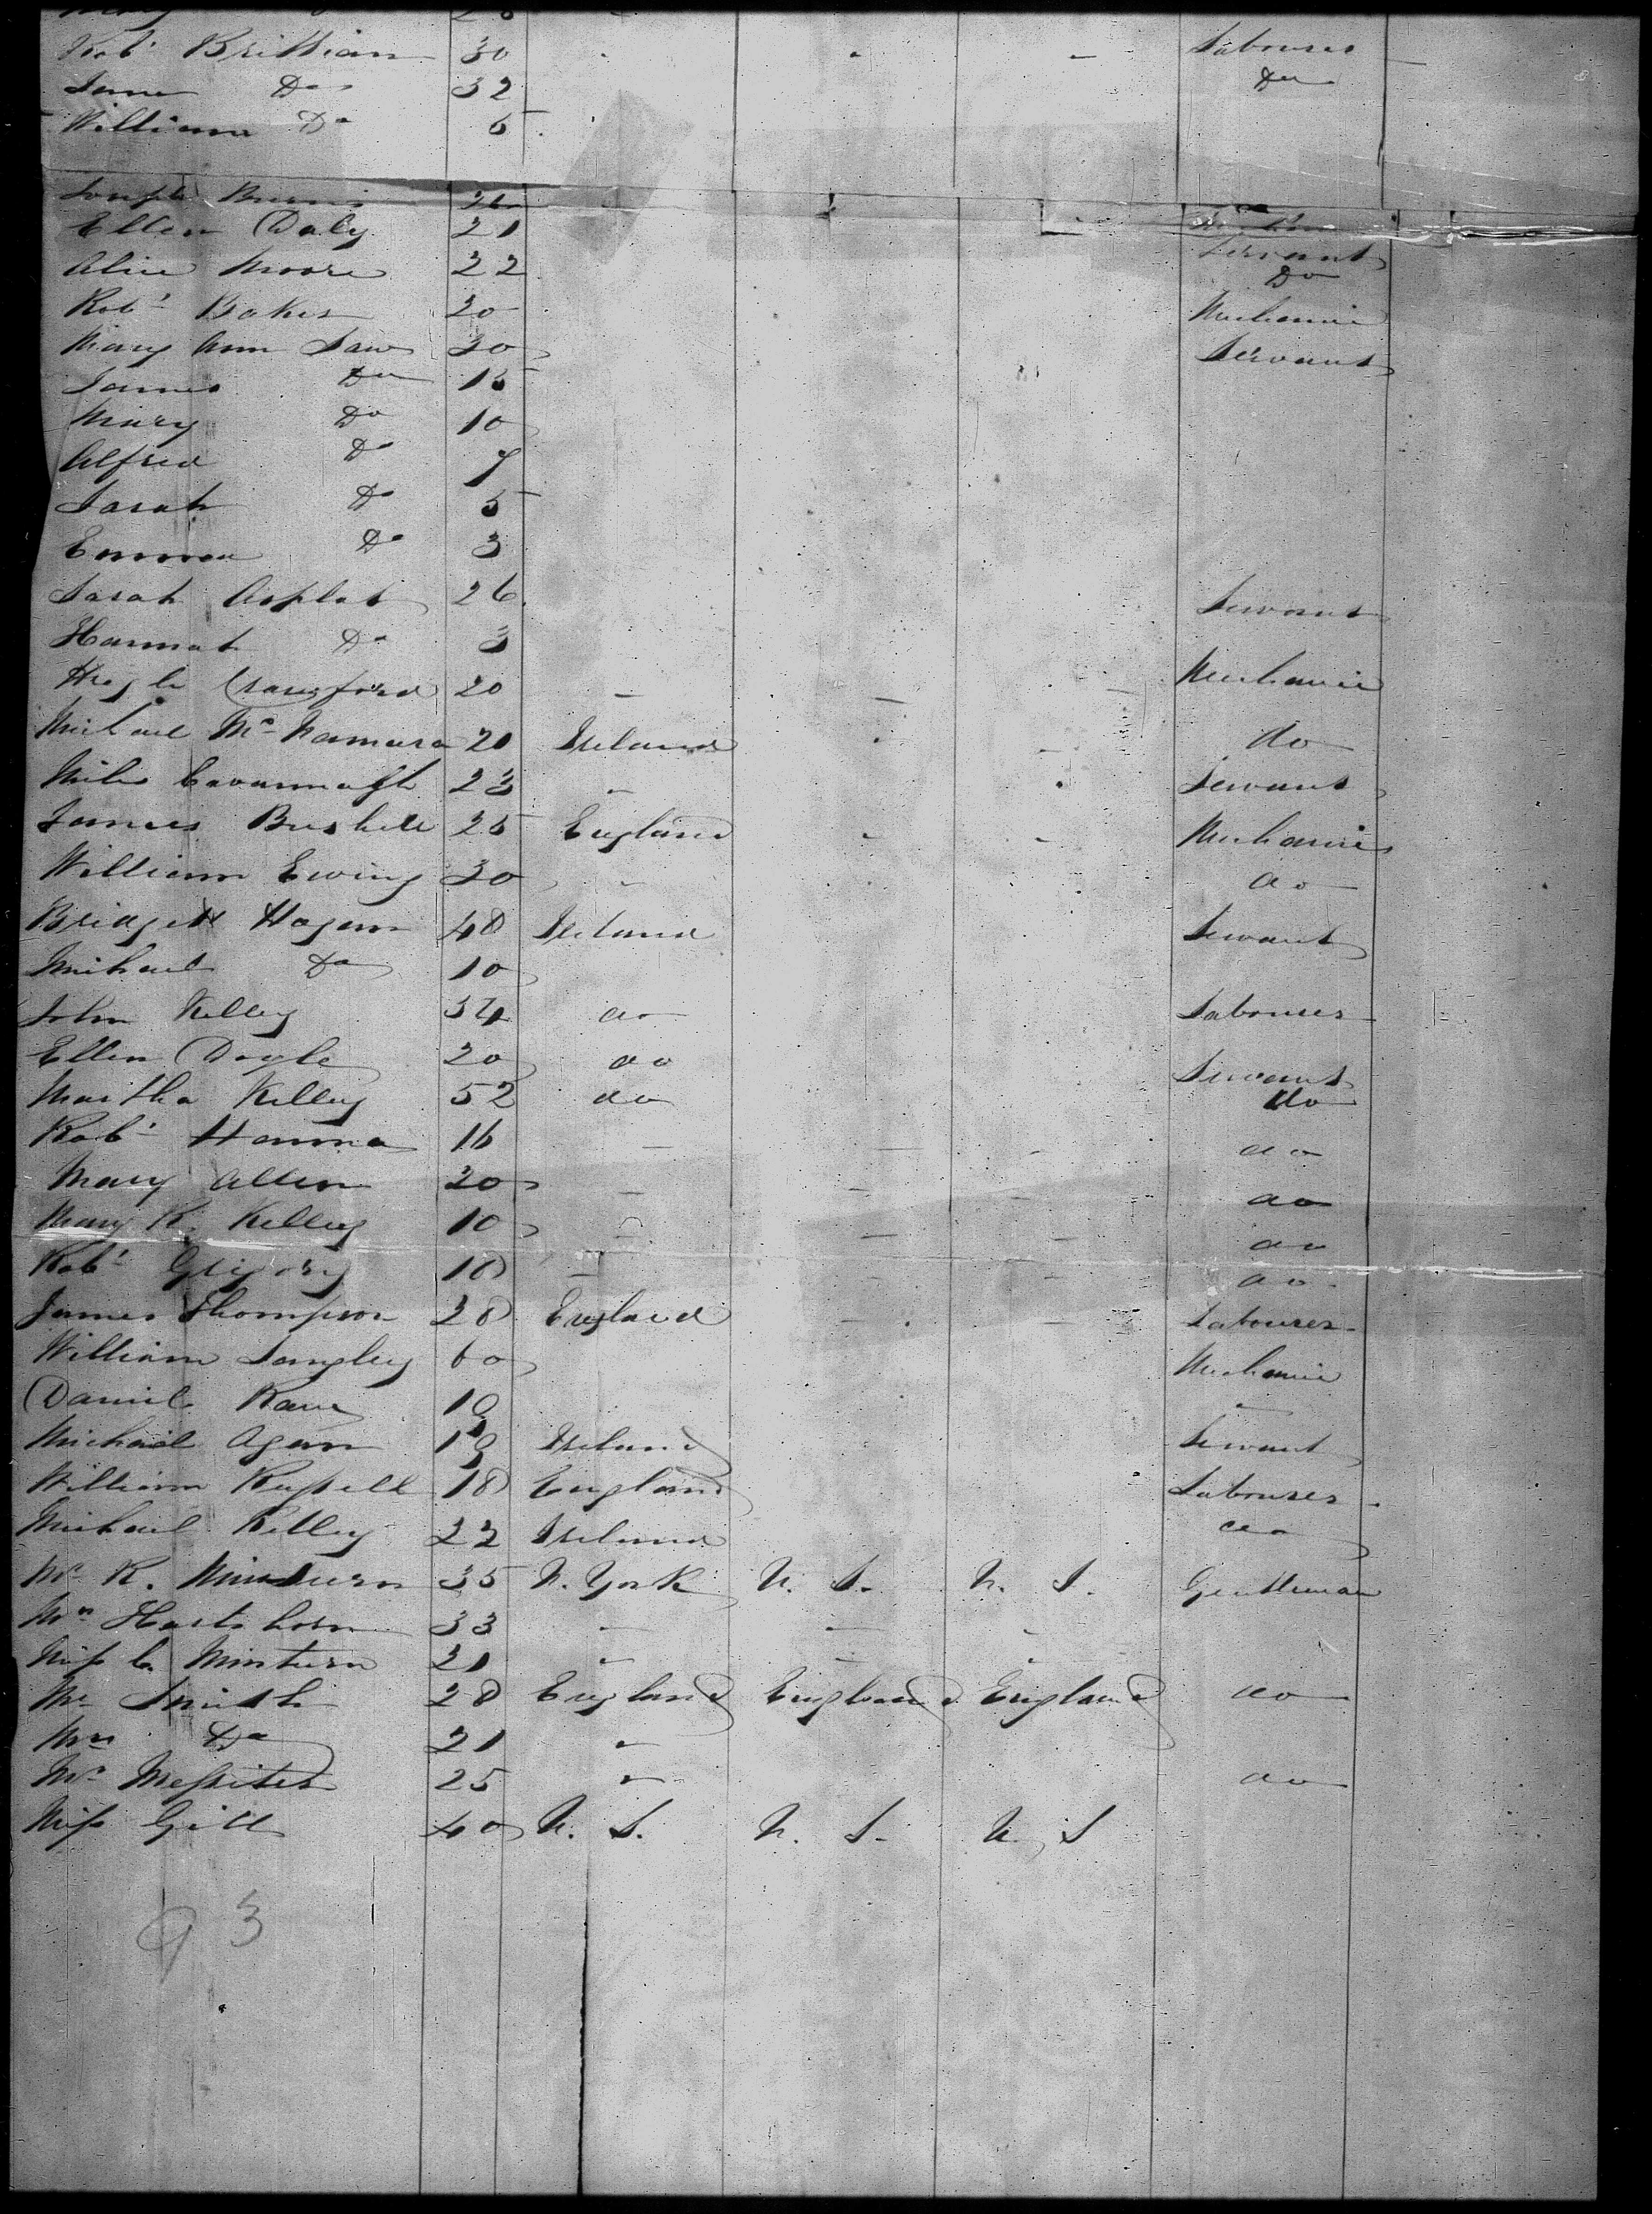 Robt Brittian 30 " " " Labourer
Jane Do 32 Do
William Do 6
Joseph Burns
Ellen Daly 21 Servant
Alice Moore 22 Do
Robt Baker 20 Mechanic
Mary Ann Law 30 Servant
James Do 15
Mary Do 10
Alfred Do 7
Sarah Do 5
Emma Do 3
Sarah 26 Servant
Hannah Do 3
Hugh Crawford 20 " " " Mechanic
Michael Mc Namara 20 Ireland " " do
Miles Cavannagh 23 " " Servant
James Bushell 25 England " " Mechanic
William Ewing 30 " " " do
Bridgett Hogan 48 Ireland Servant
Michael Do 10
John Kelley 34 do Labourer
Ellen Doyle 20 do Servant
Martha Kelley 52 do do
Robt Hanna 16 " " " do
Mary Allen 20 " " " do
Mary K. Kelley 10 " " " do
Robt Gregory 18 " " " do
James Thompson 28 England " " Labourer
William Langley 60 Mechanic
Daniel Kane "
Michael Agan Ireland Servant
William Russell 18 England Labourer
Michael Kelley 22 Ireland do
Mr R. Minturn 35 N. York U. S. U. S. Gentleman
Mrs Hartshorn 33 " " "
Miss C. Minturn 21 " "
Mr Smith 28 England England England do
Mrs Do 21 "
Mr 25 " do
Miss Gill 40 U. S. U. S. U. S
93